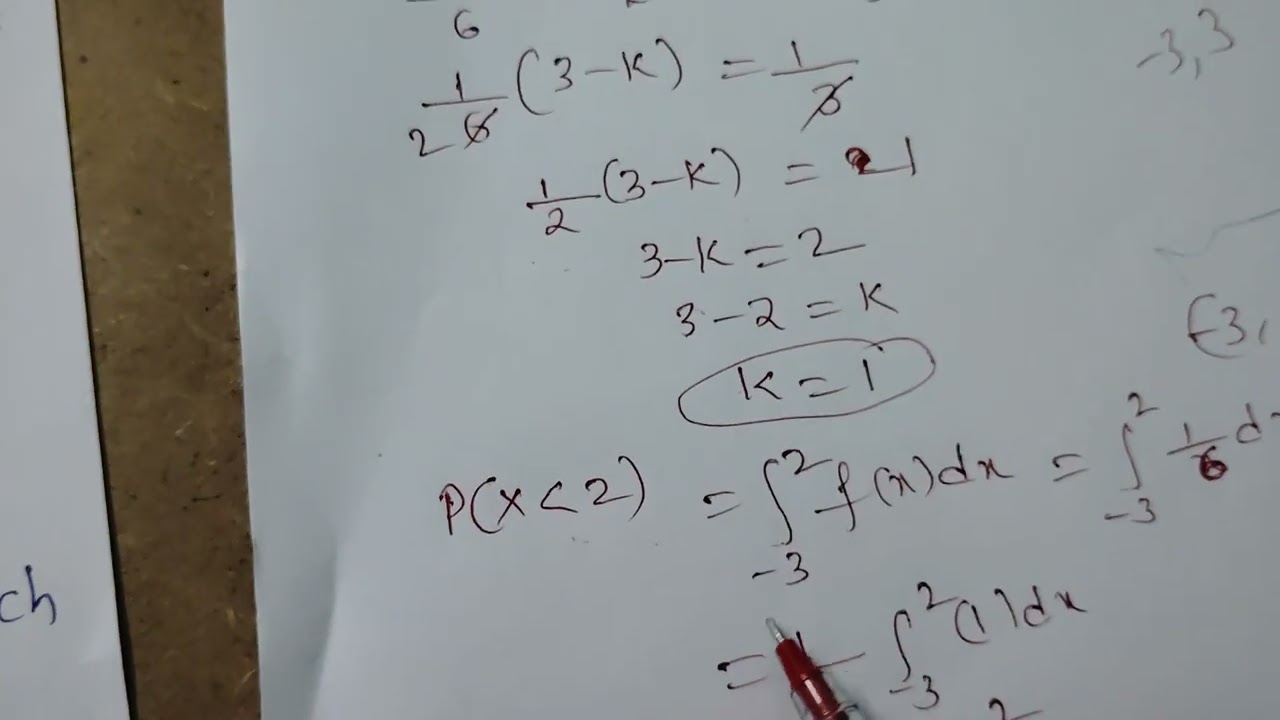 6
-3,3
1/2 6 (3-K) = 1/3
1/2 (3-K) = 1
3-K = 2
3-2 = K
(-3,
K = 1
P(X<2) = ∫_{-3}^{2} f(x)dx = ∫_{-3}^{2} 1/6 d
ch
= ∫_{-3}^{2} (1)dx
2